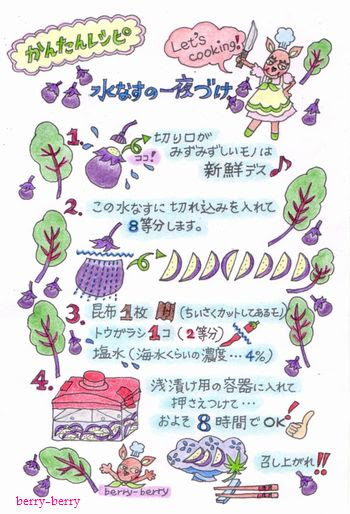 かんたんレシピ
Let's cooking!
水なすの一夜づけ
1. 切り口が
みずみずしいモノは
新鮮デス♪
ココ!
2. この水なすに 切れ込みを入れて
8等分します。
3. 昆布1枚 (ちいさくカットしてあるモノ)
トウガラシ1コ (2等分)
塩水 (海水くらいの濃度…4%)
4. 浅漬け用の容器に入れて
押さえつけて…
およそ8時間でOK!
召し上がれ!!
berry-berry
berry-berry